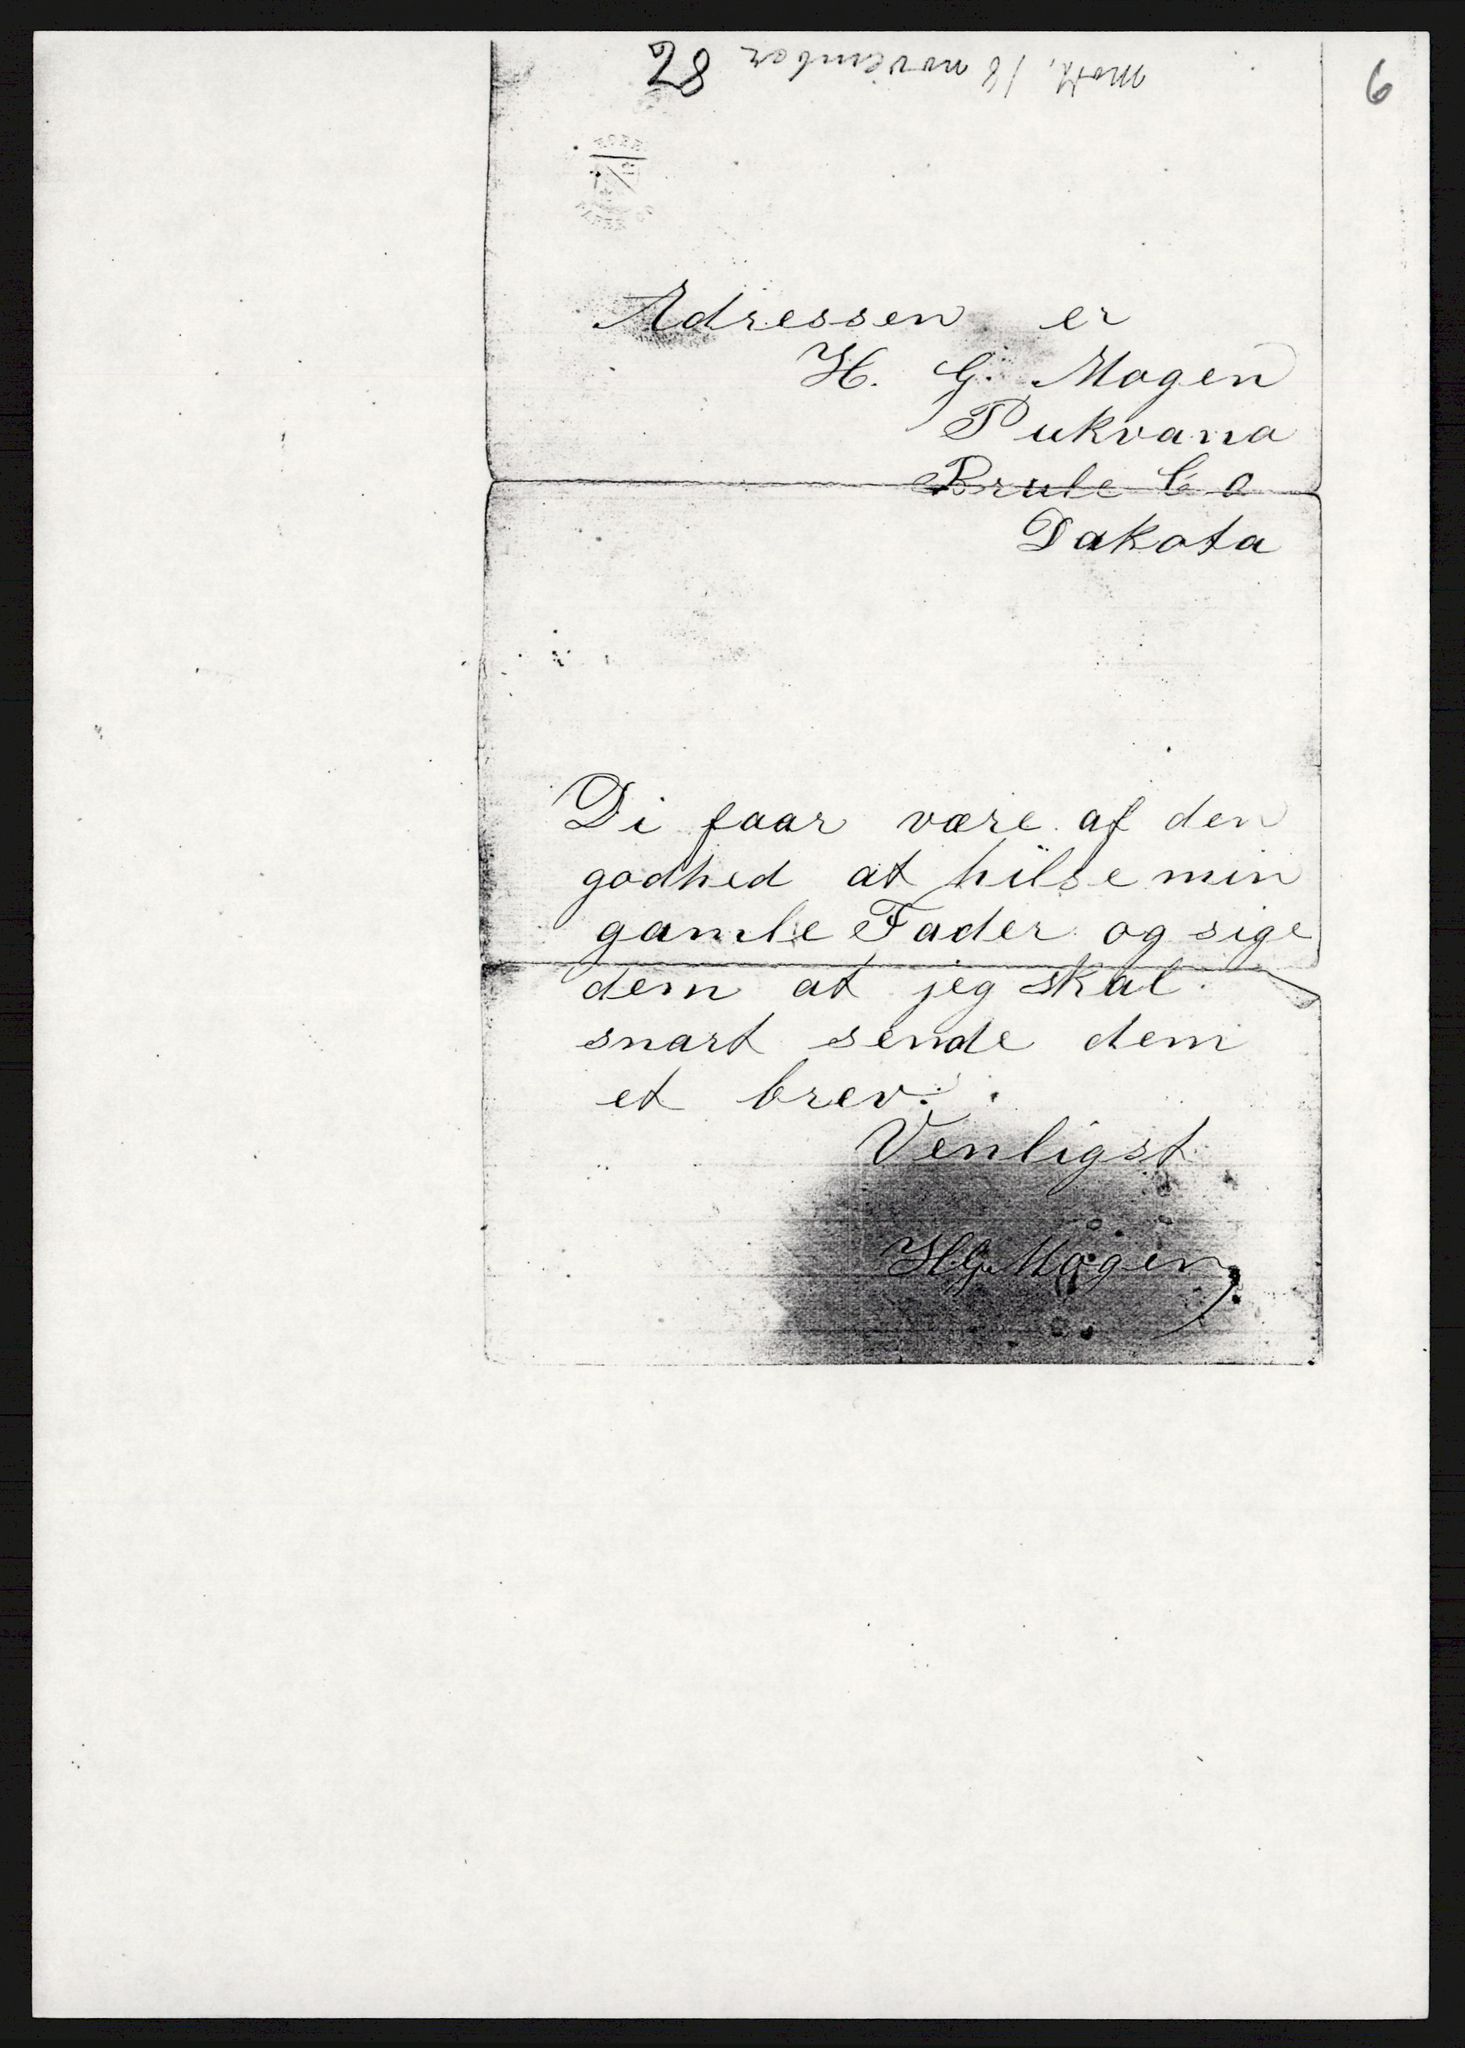 6
Mott. 18 november 82
Adressen er
H. G. Mogen
Pukvana
Brule Co
Dakota
Di faar være af den
godhed at hilse min
gamle Fader og sige
dem at jeg skal
snart sende dem
et brev.
Venligst
H G Mogen